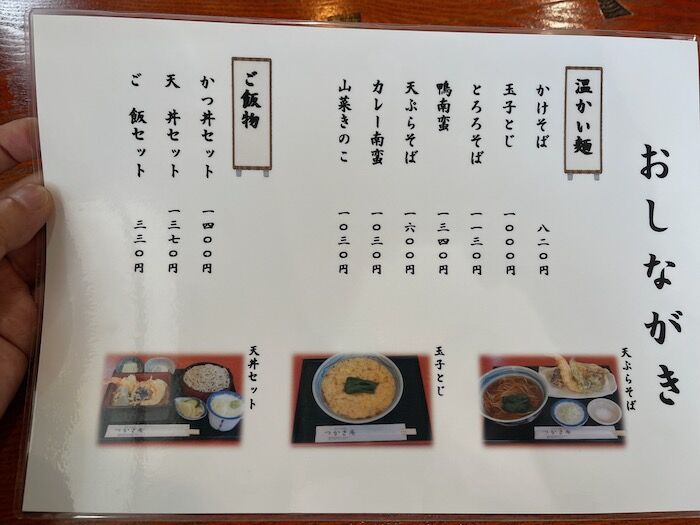 おしながき
温かい麺
かけそば 八二〇円
玉子とじ 一〇〇〇円
とろろそば 一一三〇円
鴨南蛮 一三四〇円
天ぷらそば 一六〇〇円
カレー南蛮 一〇三〇円
山菜きのこ 一〇三〇円
ご飯物
かつ丼セット 一四〇〇円
天丼セット 一三七〇円
ご飯セット 三三〇円
天ぷらそば
つかさ庵
玉子とじ
つかさ庵
天丼セット
つかさ庵